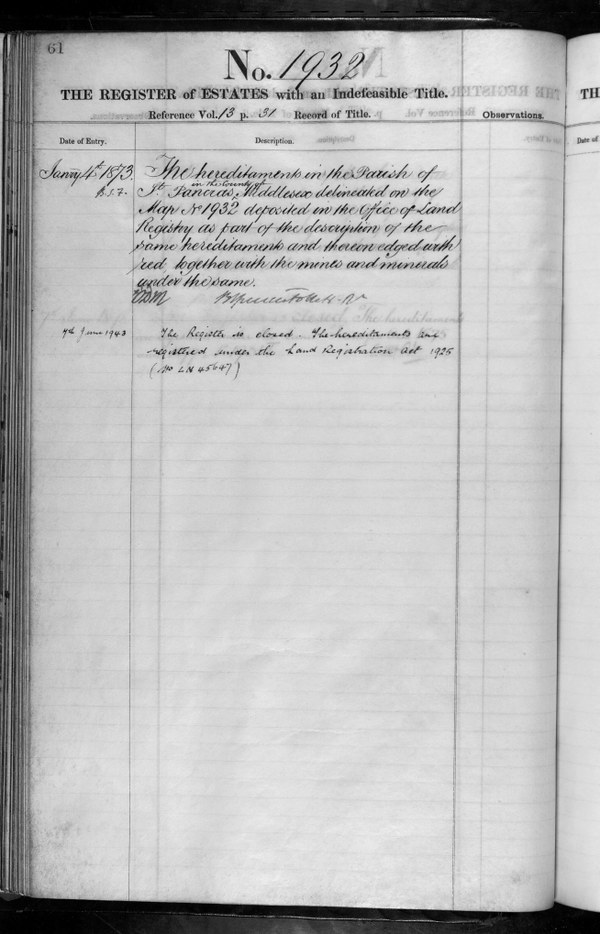 61
No. 1932
THE REGISTER of ESTATES with an Indefeasible Title.
Reference Vol. 13 p. 31 Record of Title.
Observations.
Date of Entry.
Description.
Jan'y 4th 1873.
The hereditaments in the Parish of
St. Pancras, in the County of Middlesex delineated on the
Map No 1932 deposited in the Office of Land
Registry as part of the description of the
same hereditaments and thereon edged with
red, together with the mines and minerals
under the same.
7th June 1943
The Register is closed. The hereditaments are
registered under the Land Registration Act 1925
(No LN 45647)
TH
Date of